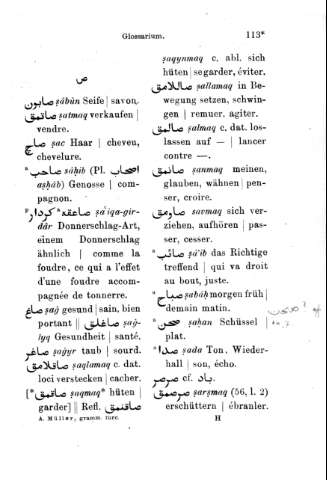 Glossarium. 113*
ص
صابون ṣābūn Seife | savon.
صاتمق ṣatmaq verkaufen |
vendre.
صاچ ṣac Haar | cheveu,
chevelure.
*صاحب ṣāḥib (Pl. اصحاب
aṣḥāb) Genosse | com-
pagnon.
*صاعقه كردار ṣāʿiqa-gir-
dār Donnerschlag-Art,
einem Donnerschlag
ähnlich | comme la
foudre, ce qui a l'effet
d'une foudre accom-
pagnée de tonnerre.
صاغ ṣaġ gesund | sain, bien
portant || صاغلق ṣaġ-
lyq Gesundheit | santé.
صاغر ṣaġyr taub | sourd.
صاقلامق ṣaqlamaq c. dat.
loci verstecken | cacher.
[*صاقمق ṣaqmaq* hüten |
garder] || Refl. صاقنمق
A. Müller, gramm. turc.
ṣaqynmaq c. abl. sich
hüten | se garder, éviter.
صاللامق ṣallamaq in Be-
wegung setzen, schwin-
gen | remuer, agiter.
صالمق ṣalmaq c. dat. los-
lassen auf — | lancer
contre —.
صانمق ṣanmaq meinen,
glauben, wähnen | pen-
ser, croire.
صاومق savmaq sich ver-
ziehen, aufhören | pas-
ser, cesser.
*صائب ṣāʾib das Richtige
treffend | qui va droit
au bout, juste.
*صباح ṣabāḥ morgen früh |
demain matin.
*صحن ṣaḥan Schüssel |
plat.
*صدا ṣada Ton, Wieder-
hall | son, écho.
صرصر cf. باد.
صرصمق ṣarṣmaq (56, l. 2)
erschüttern | ébranler.
H